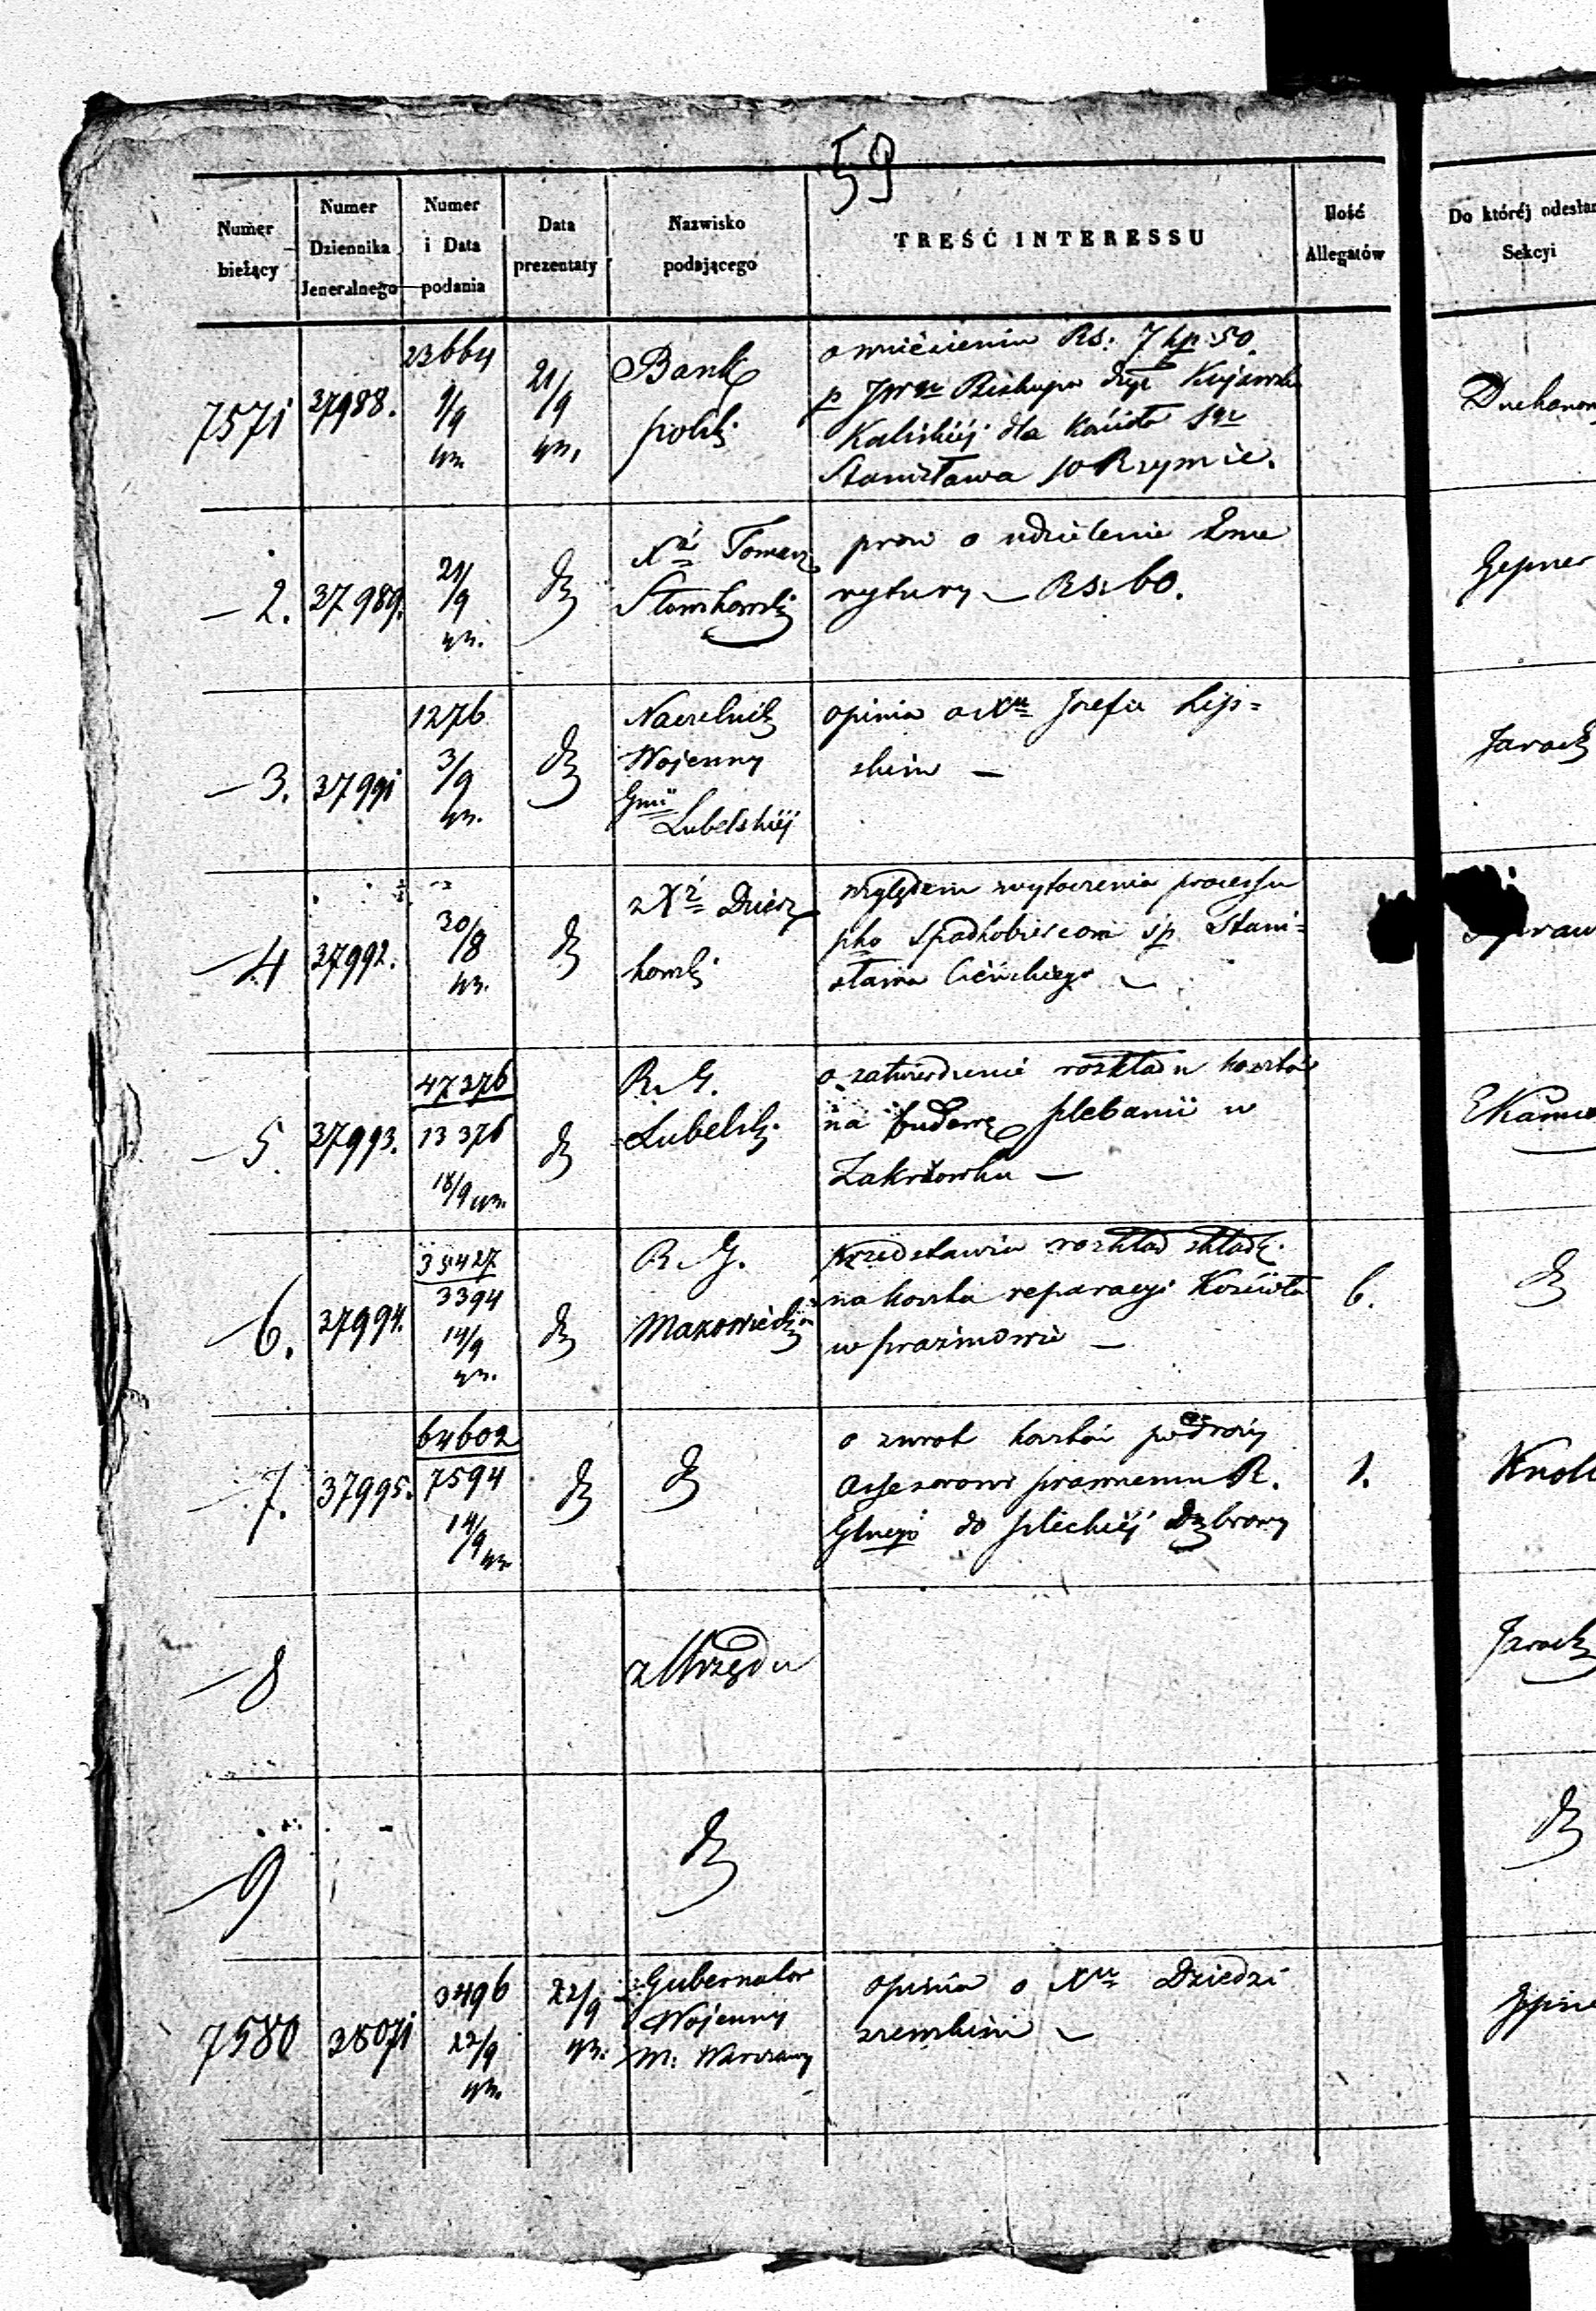 59
Numer bieżący
Numer Dziennika Jeneralnego
Numer i Data podania
Data prezentaty
Nazwisko podającego
TREŚĆ INTERESSU
Ilość Allegatów
Do któréj odesłan
Sekcyi
7571 37988. 23664 9/9 21/9
Bank
polski
o wniesieniu Rs. 7 kp. 50.
p JWgo Biskupa Dyec Kujawsko
Kaliskiéj dla kościoła Sgo
Stanisława w Rzymie.
2. 37989. 21/9 d
Xdz Tomasz
prosi o udzielenie Eme
rytury – Rsr 60.
Gepner
3. 37991 1276 3/9 d
Naczelnik
Wojenny
Gnii
Lubelskiéj
opinia o Xdzu Jozefie Lip=
skim –
4 37992. 30/8 d
Xdz
kowski
względem wytoczenia processu
pko Spadkobiercom śp Stani=
sława Cieńskiego –
5 37993. 47376
13376
18/9 d
R. G.
Lubelski
o zatwierdzenie rozkładu kosztów
na budowę plebanii w
Zakrzowku –
6. 37994. 35427
3394
14/9 d
R. G.
Mazowiecki
przedstawia rozkład składki
na koszta reparacyi Kościoła
w Prazmowie –
6. d
7. 37995. 64602
7594
14/9 d d
o zwrot kosztów podroży
Assessorowi prawnemu R.
Glnego do Dąbrowy
1.
8 z Urzędu
9 d d
7580 38071 3496 22/9 22/9
Gubernator
Wojenny
m. Warszawy
opinia o Xdzu Dziedzi